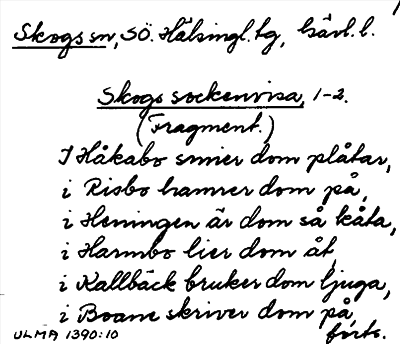 Skogs sn, SÖ. Hälsingl. tg, Gävl. l.
Skogs sockenvisa, 1-2.
(Fragment.)
I Håkabo smier dom plåtar,
i Risbo hamrer dom på,
i Heningen är dom så kåta,
i Harmbo lier dom åt,
i Kallbäck bruker dom ljuga,
i Boane skriver dom på,
forts.
ULMA 1390:10